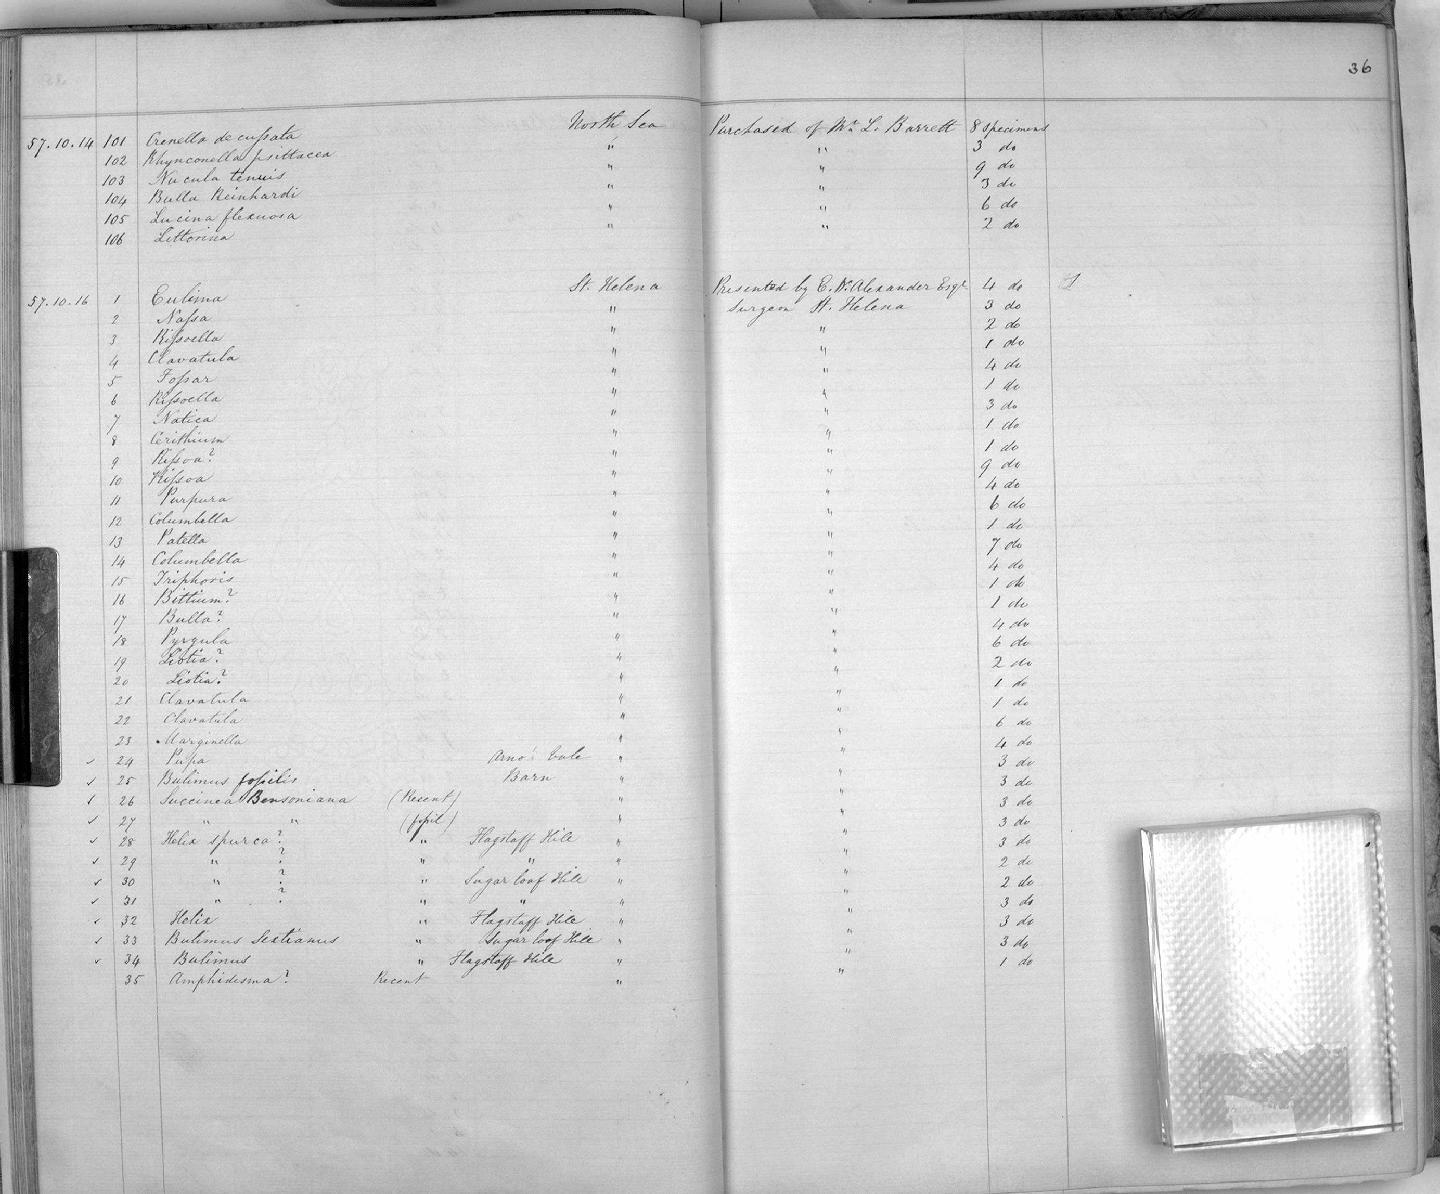 36
57.10.14 101 Crenella decussata North Sea Purchased of Mr. L. Barrett 8 Specimens
102 Rhynconella psittacea " " 3 do
103 Nucula tenuis " " 9 do
104 Bulla Reinhardi " " 3 do
105 Lucina flexuosa " " 6 do
106 Littorina " " 2 do
57.10.16 1 Eulima St. Helena Presented by C. Dr. Alexander Esqr. 4 do
2 Nassa " Surgeon St. Helena 3 do
3 Rissoella " " 2 do
4 Clavatula " " 1 do
5 Fossar " " 4 do
6 Rissoella " " 1 do
7 Natica " " 3 do
8 Cerithium " " 1 do
9 Rissoa? " " 1 do
10 Rissoa " " 9 do
11 Purpura " " 4 do
12 Columbella " " 6 do
13 Patella " " 1 do
14 Columbella " " 7 do
15 Triphoris " " 4 do
16 Bittium? " " 1 do
17 Bulla? " " 1 do
18 Pyrgula " " 4 do
19 Liotia? " " 6 do
20 Liotia? " " 2 do
21 Clavatula " " 1 do
22 Clavatula " " 1 do
23 Marginella " " 6 do
✓ 24 Pupa Arno's Vale " " 4 do
✓ 25 Bulimus fossilis Barn " " 3 do
✓ 26 Succinea Bensoniana (Recent) " " 3 do
✓ 27 " " (fossil) " " 3 do
✓ 28 Helix spurca? " Flagstaff Hill " " 3 do
✓ 29 " ? " " " " 3 do
✓ 30 " ? " Sugar loaf Hill " " 2 do
✓ 31 " ? " " " " 2 do
✓ 32 Helix " Flagstaff Hill " " 3 do
✓ 33 Bulimus Sextianus " Sugar loaf Hill " " 3 do
✓ 34 Bulimus " Flagstaff Hill " " 3 do
35 Amphidesma? Recent " " 1 do